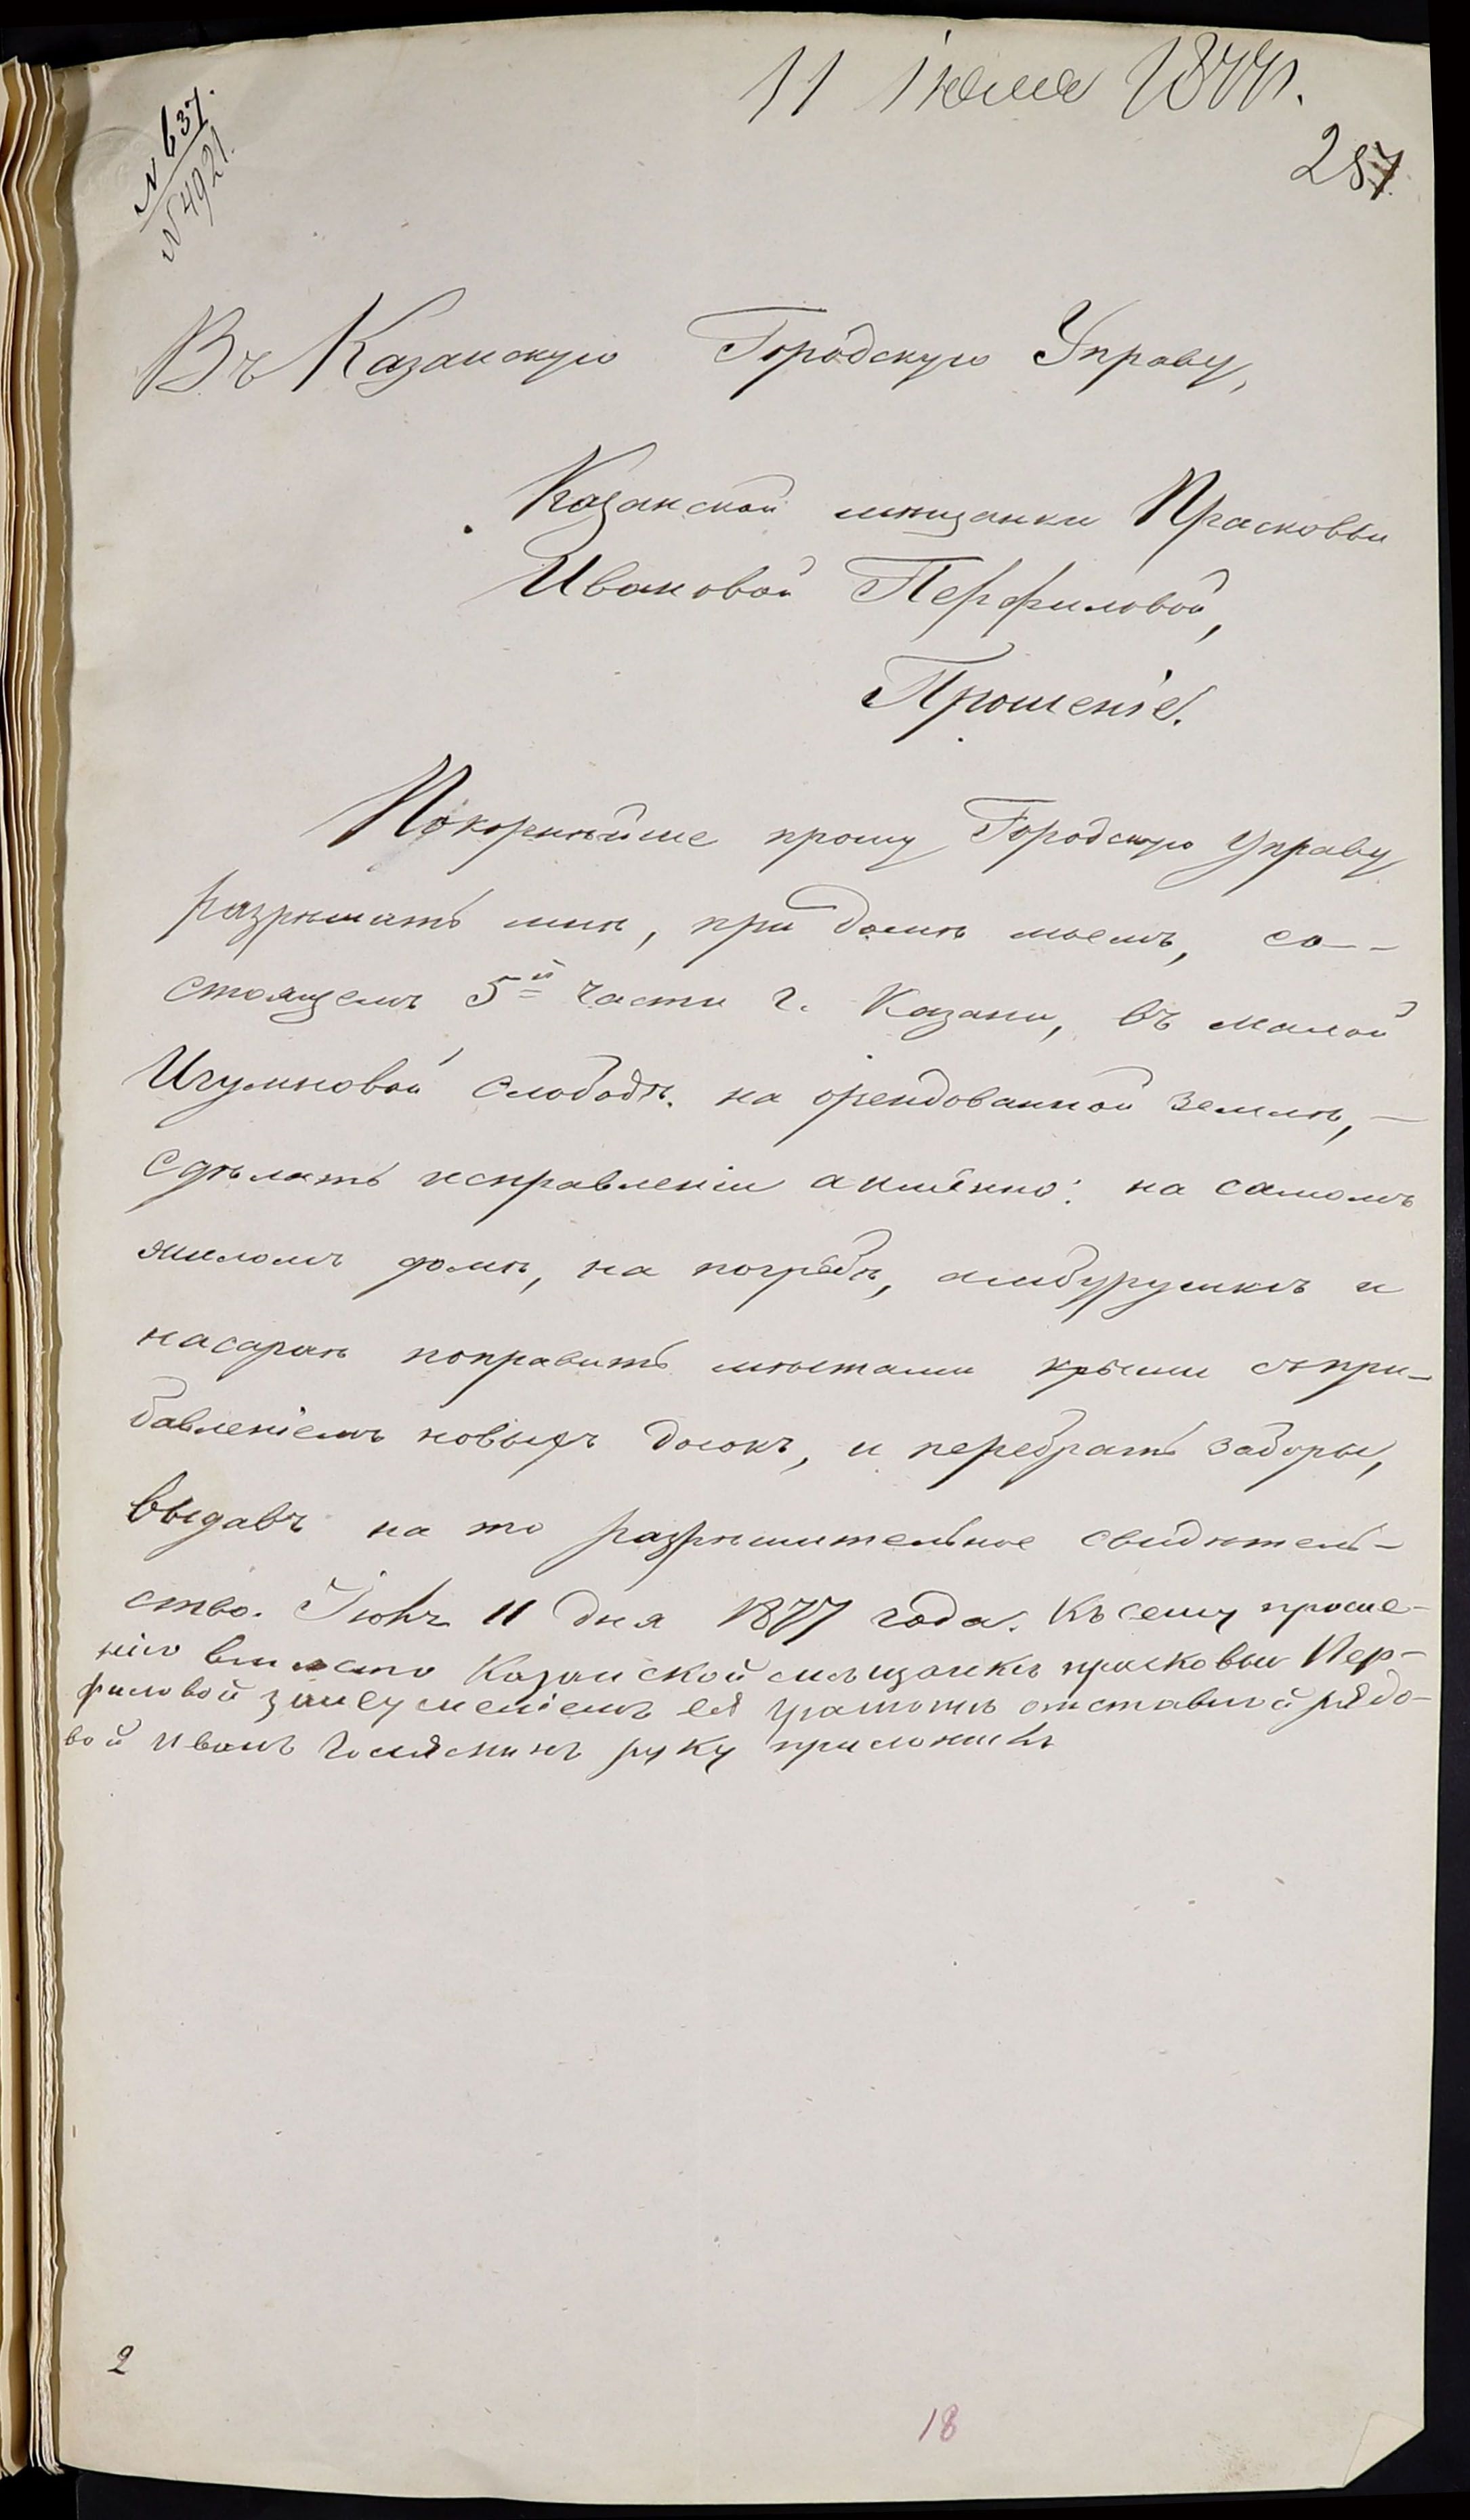 11 Іюня 1877 г.
287
№ 637.
№ 4921.
Въ Казанскую Городскую Управу,
Казанской мѣщанки Прасковьи
Ивановой Перфиловой,
Прошеніе.
Покорнѣйше прошу Городскую Управу
разрѣшить мнѣ, при домѣ моемъ, со-
стоящемъ 5й части г. Казани, въ малой
Игумновой слободѣ. на орендованной землѣ, —
сдѣлать исправленіи аимѣнно: на самомъ
жиломъ домѣ, на погребѣ, амбурушкѣ и
насараѣ поправить мѣстами крыши съпри-
бавленіемъ новыхъ досокъ, и перебрать заборы,
выдавъ на то разрѣшительное свидѣтель-
ство. Іюнь 11 дня 1877 года. Къ сему проше-
нію вмѣсто Казанской мѣщанкѣ прасковьи Пер-
филовой занеумѣніемъ ея грамотѣ отставной рядо-
вой Иванъ руку приложилъ
2
18